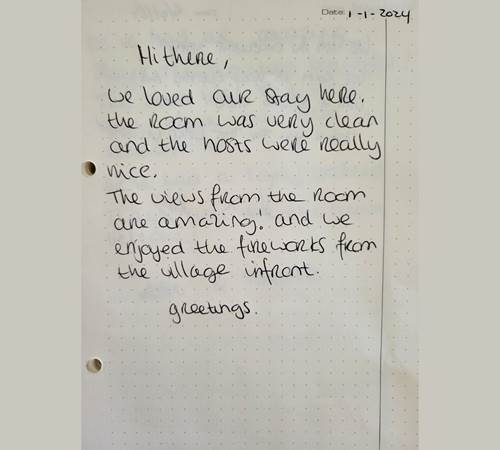 Date: 1-1-2024
Hi there,
we loved our stay here.
the room was very clean
and the hosts were really
nice.
The views from the room
are amazing! and we
enjoyed the fireworks from
the village infront.
greetings.